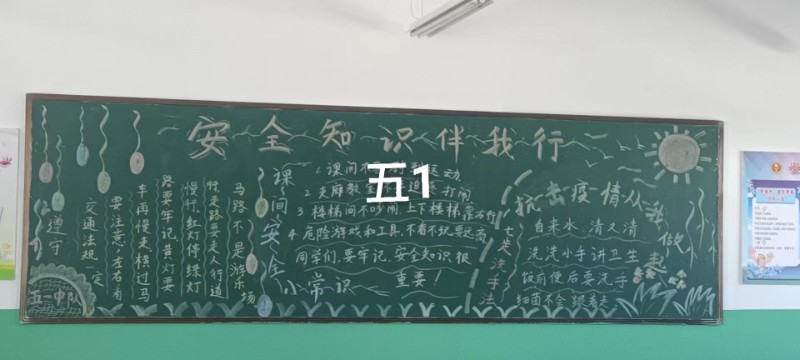 安全知识伴我行
五1
马路不是游乐场
行走路要走人行道
慢行,红灯停绿灯
路要牢记黄灯要
车再慢走横过马
要注意:左右看
交通法规一定
遵守
五一中队
课间安全小常识
1.课间不
2.走廊教室 追 打闹
3 楼梯间不吵闹,上下楼梯靠右行
4.危险游戏和工具,不看不玩要远离
同学们,要牢记,安全知识很
重要!
抗击疫情从我做起
七步洗手法
自来水,清又清
洗洗小手讲卫生
饭前便后要洗手
细菌不会跟着走